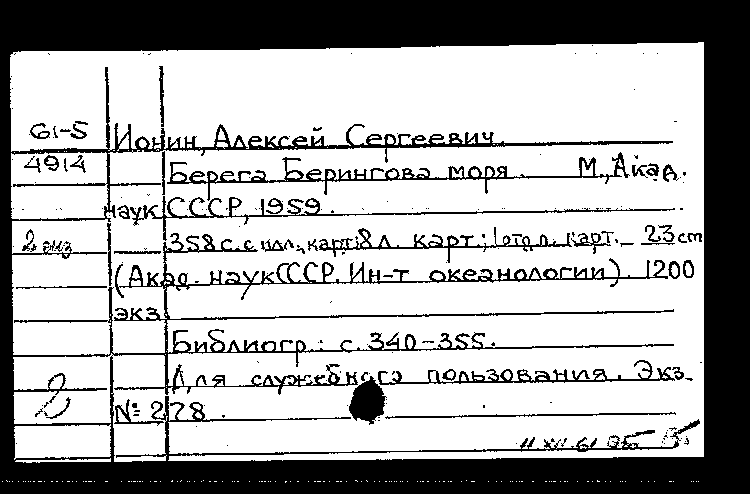 G1-5 Ионин, Алексей Сергеевич.
4914 Берега Берингова моря. М., Акад.
наук СССР, 1959.
2 экз 358 с. с илл., карт; 8 л. карт.; 1 отд. л. карт. 23 cm
(Акад. наук СССР. Ин-т океанологии). 1200
экз.
Библиогр.: с. 340-355.
Для служебного пользования. Экз.
2 № 278.
11 XII 61